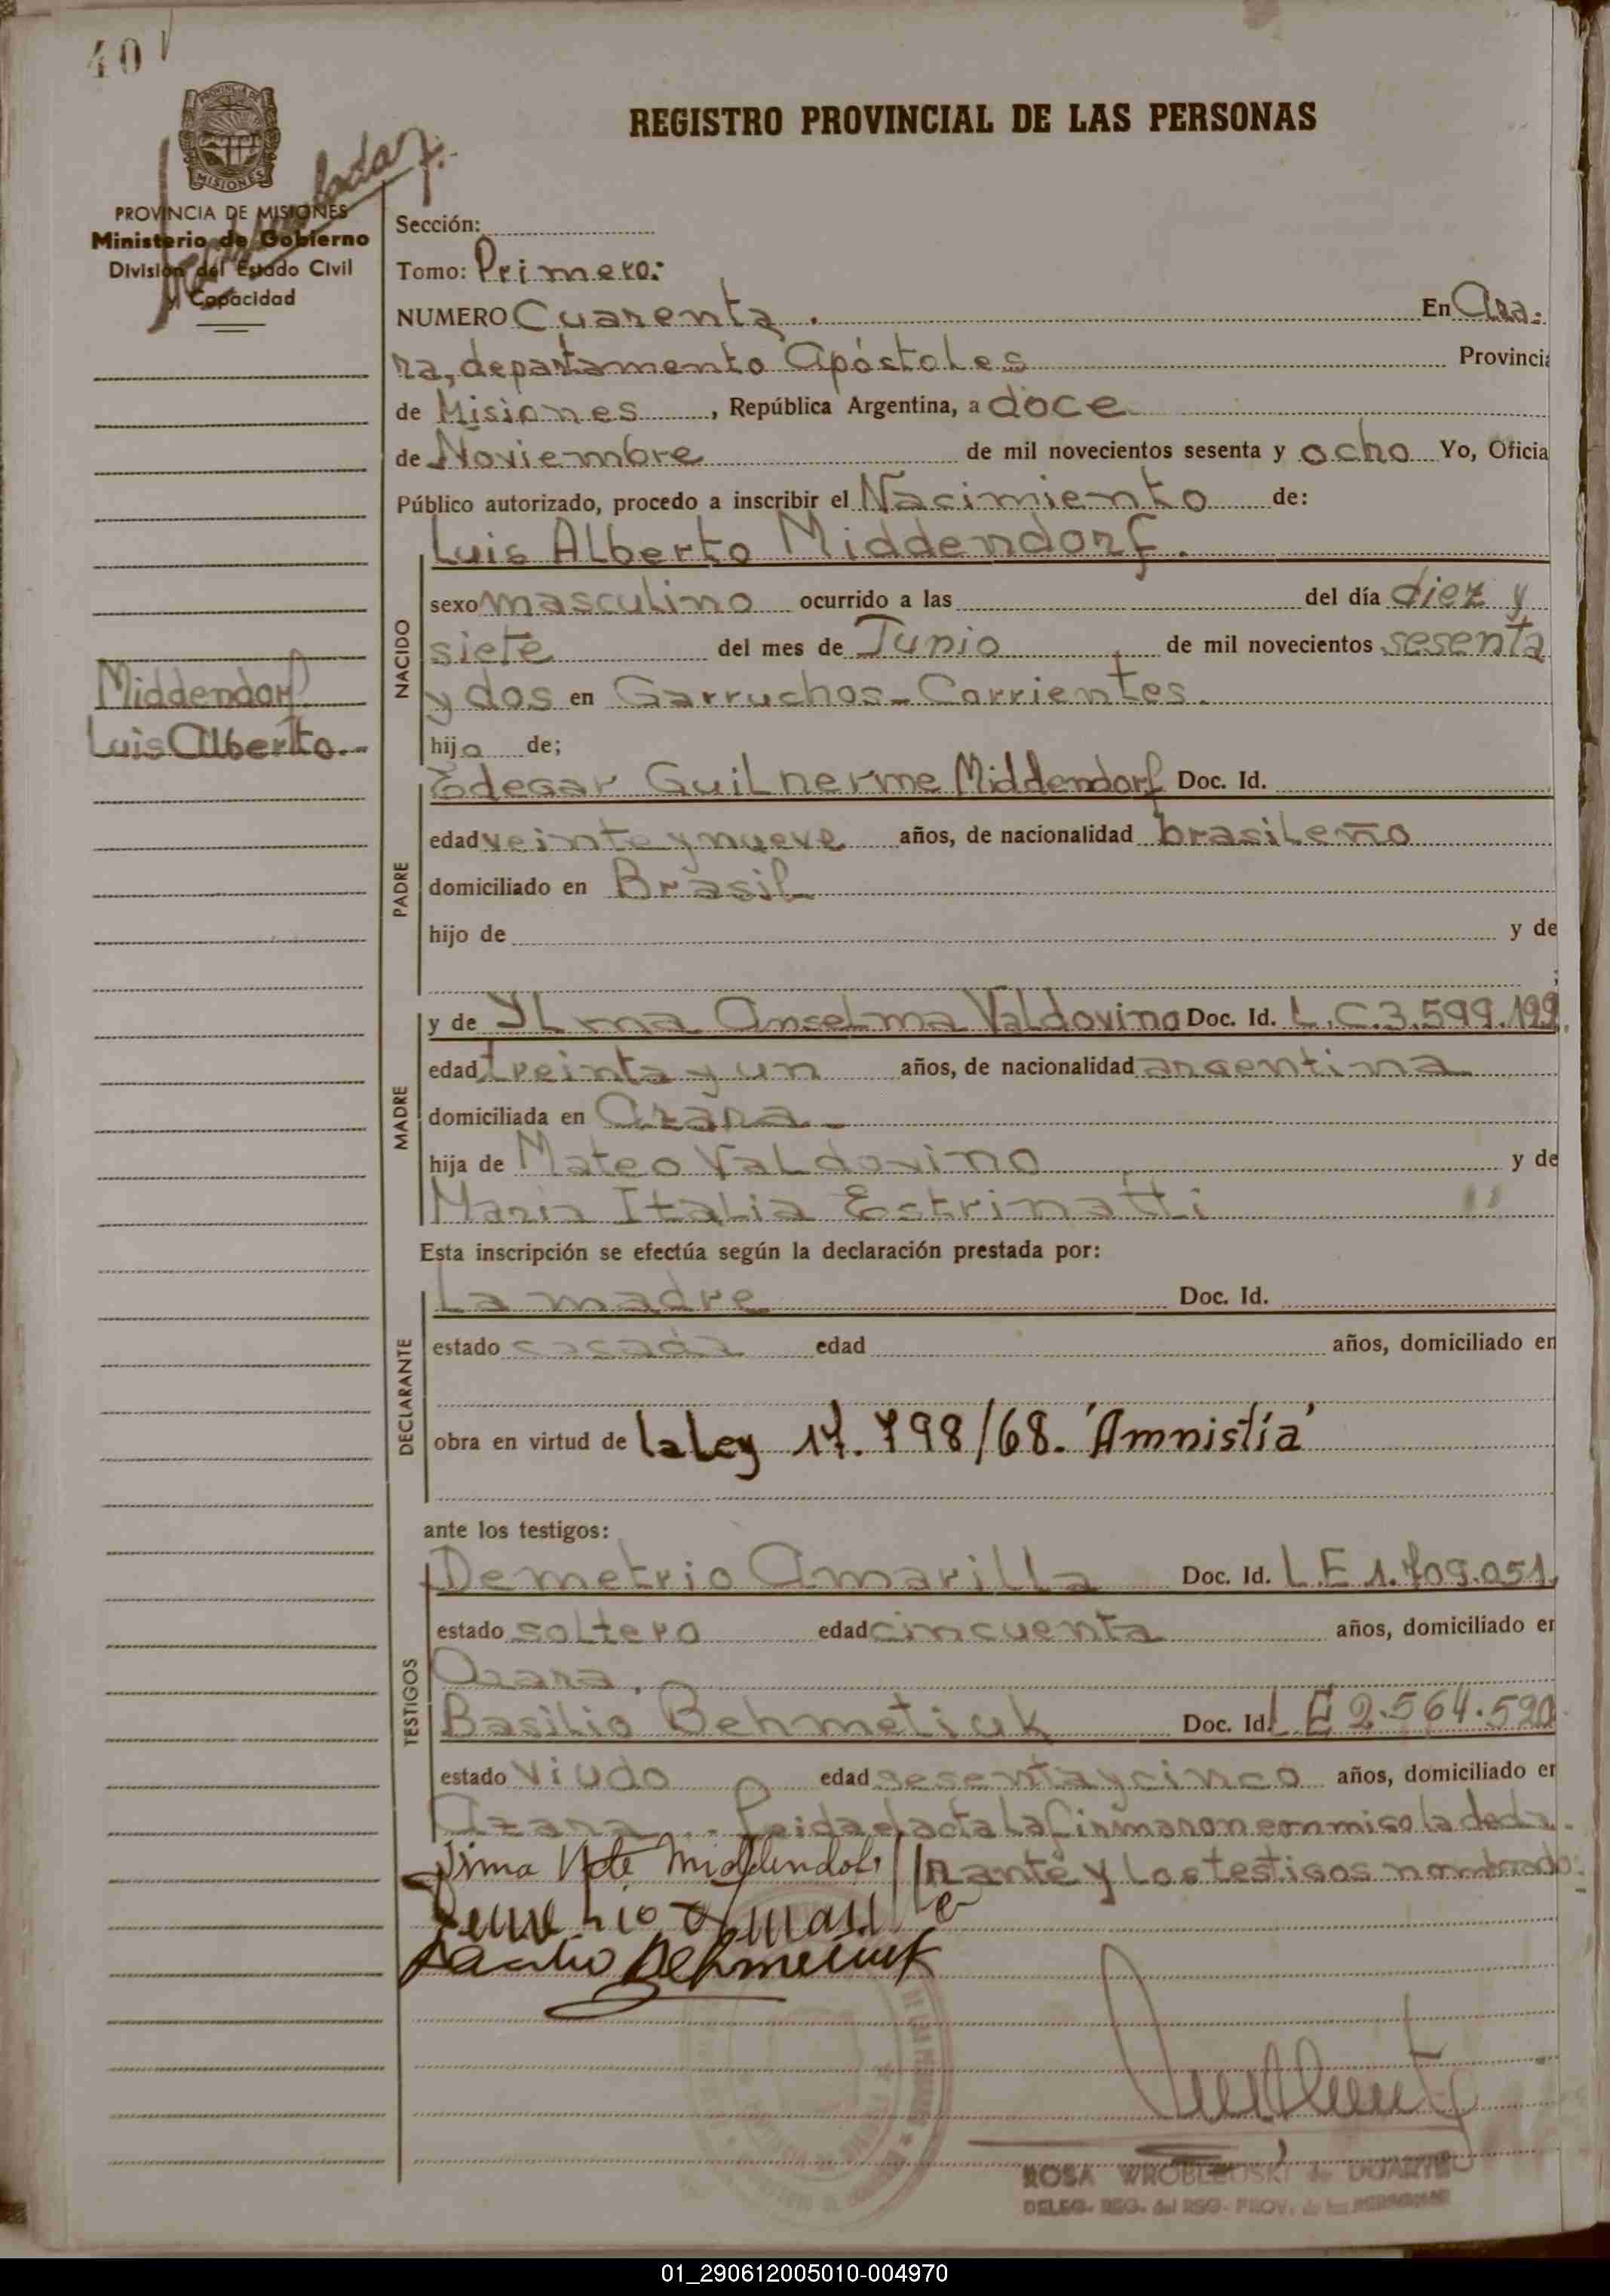 40
REGISTRO PROVINCIAL DE LAS PERSONAS
MISIONES
PROVINCIA DE MISIONES
Ministerio de Gobierno
División del Estado Civil
y Capacidad
Sección:
Tomo: Primero:
NUMERO Cuarenta. En Aza-
ra, departamento Apóstoles Provincia
de Misiones, República Argentina, a doce
de Noviembre de mil novecientos sesenta y ocho Yo, Oficia
Público autorizado, procedo a inscribir el Nacimiento de:
Luis Alberto Middendorf.
NACIDO
sexo masculino ocurrido a las del día diez y
siete del mes de Junio de mil novecientos sesenta
y dos en Garruchos-Corrientes.
Middendorf
Luis Alberto.-
hijo de;
Edegar Guilherme Middendorf Doc. Id.
PADRE
edad veinte y nueve años, de nacionalidad brasileño
domiciliado en Brasil
hijo de y de
;
y de Ilma Anselma Valdovino Doc. Id. L.C.3.599.199.
MADRE
edad treinta y un años, de nacionalidad argentina
domiciliada en Azara.-
hija de Mateo Valdovino y de
Maria Italia Estrinatti
Esta inscripción se efectúa según la declaración prestada por:
La madre Doc. Id.
DECLARANTE
estado casada edad años, domiciliado en
obra en virtud de la Ley 17.798/68. 'Amnistía'
ante los testigos:
Demetrio Amarilla Doc. Id. L E 1.709.051.
TESTIGOS
estado soltero edad cincuenta años, domiciliado en
Azara.
Basilio Behmetiuk Doc. Id. L E 2.564.590
estado viudo edad sesenta y cinco años, domiciliado en
Azara.. Leida el acta la firmaron conmigo la decla-
rante y los testigos nombrados.-
Basilio Behmetiuk
ROSA WROBLEUSKI de DUARTE
DELEG. REG. del REG. PROV. de las PERSONAS
01_290612005010-004970